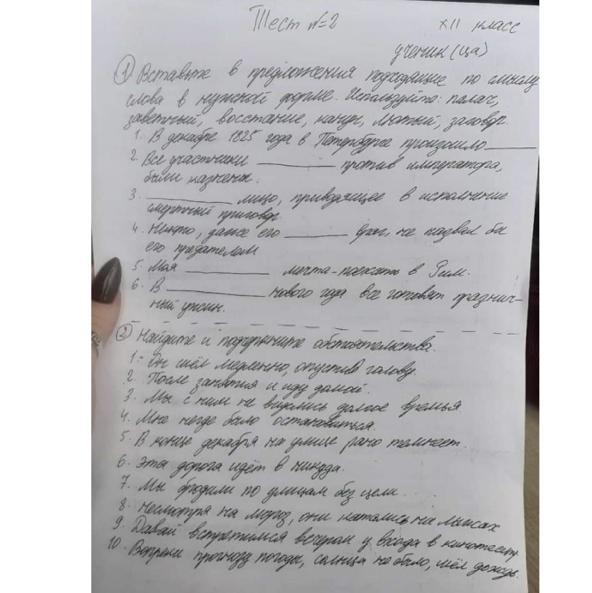 Тест №2
XII класс
ученик (ца)
① Вставьте в предложения подходящие по смыслу
слова в нужной форме. Используйте: палач,
заветный, восстание, канун, лютый, заговор.
1. В декабре 1825 года в Петербурге произошло ______
2. Все участники ______ против императора,
были казнены.
3. ______ лицо, приводящее в исполнение
смертный приговор
4. Никто, даже его ______ враг, не назвал бы
его предателем
5. Моя ______ мечта - поехать в Рим.
6. В ______ нового года все готовят празднич-
ный ужин.
② Найдите и подчеркните обстоятельства.
1. Он шёл медленно, опустив голову.
2. После занятия я иду домой.
3. Мы с ним не виделись долгое время
4. Мне негде было остановиться.
5. В конце декабря на улице рано темнеет.
6. Эта дорога идёт в никуда.
7. Мы бродили по улицам без цели.
8. Несмотря на мороз, они катались на лыжах
9. Давай встретимся вечером у входа в кинотеатр.
10. Вопреки прогнозу погоды, солнца не было, шёл дождь.